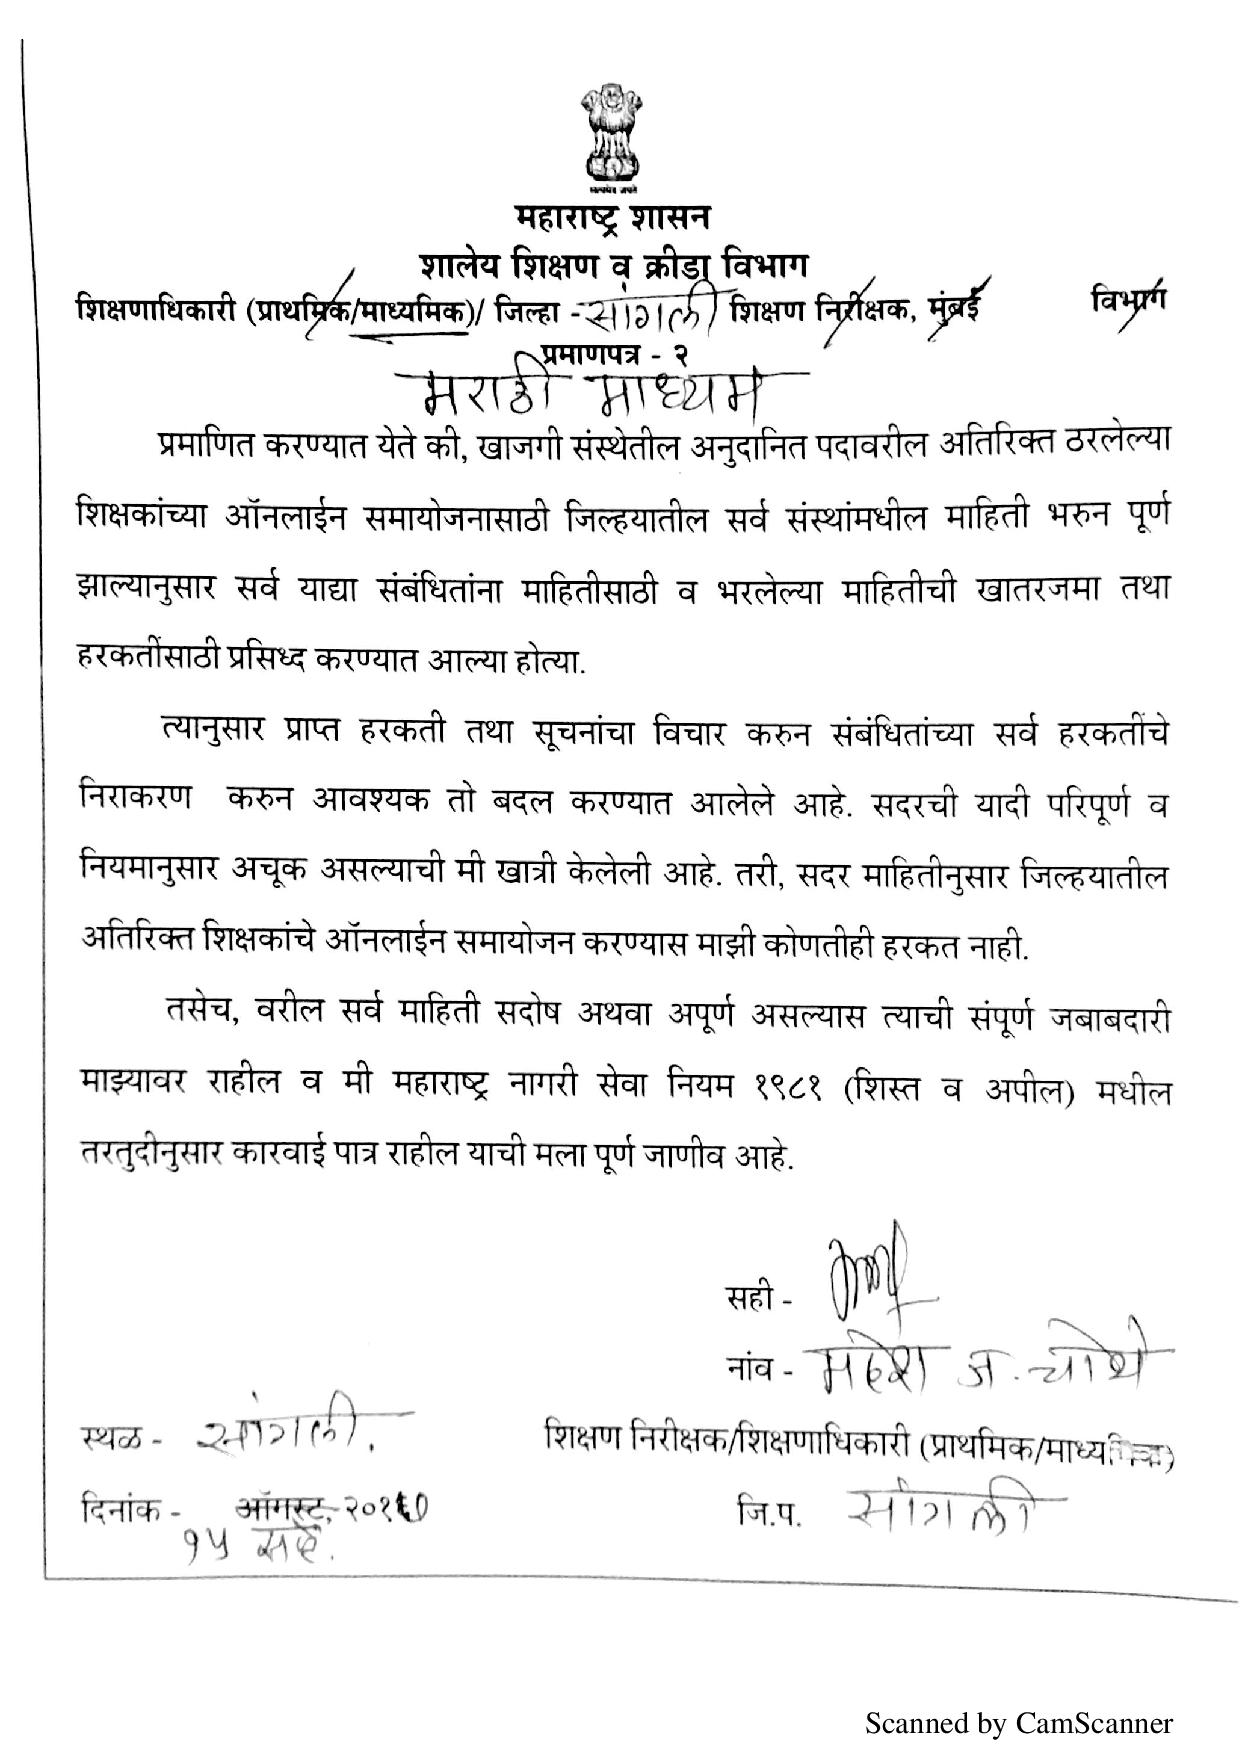 सत्यमेव जयते
महाराष्ट्र शासन
शालेय शिक्षण व क्रीडा विभाग
शिक्षणाधिकारी (प्राथमिक/माध्यमिक)/ जिल्हा - सांगली शिक्षण निरीक्षक, मुंबई विभाग
प्रमाणपत्र - २
मराठी माध्यम
प्रमाणित करण्यात येते की, खाजगी संस्थेतील अनुदानित पदावरील अतिरिक्त ठरलेल्या
शिक्षकांच्या ऑनलाईन समायोजनासाठी जिल्हयातील सर्व संस्थांमधील माहिती भरुन पूर्ण
झाल्यानुसार सर्व याद्या संबंधितांना माहितीसाठी व भरलेल्या माहितीची खातरजमा तथा
हरकतींसाठी प्रसिध्द करण्यात आल्या होत्या.
त्यानुसार प्राप्त हरकती तथा सूचनांचा विचार करुन संबंधितांच्या सर्व हरकतींचे
निराकरण करुन आवश्यक तो बदल करण्यात आलेले आहे. सदरची यादी परिपूर्ण व
नियमानुसार अचूक असल्याची मी खात्री केलेली आहे. तरी, सदर माहितीनुसार जिल्हयातील
अतिरिक्त शिक्षकांचे ऑनलाईन समायोजन करण्यास माझी कोणतीही हरकत नाही.
तसेच, वरील सर्व माहिती सदोष अथवा अपूर्ण असल्यास त्याची संपूर्ण जबाबदारी
माझ्यावर राहील व मी महाराष्ट्र नागरी सेवा नियम १९८१ (शिस्त व अपील) मधील
तरतुदीनुसार कारवाई पात्र राहील याची मला पूर्ण जाणीव आहे.
सही -
नांव - महेश ज. चोथे
स्थळ - सांगली.
शिक्षण निरीक्षक/शिक्षणाधिकारी (प्राथमिक/माध्यमिक)
दिनांक - ऑगस्ट, २०१७
जि.प. सांगली
१५ सप्टें.
Scanned by CamScanner